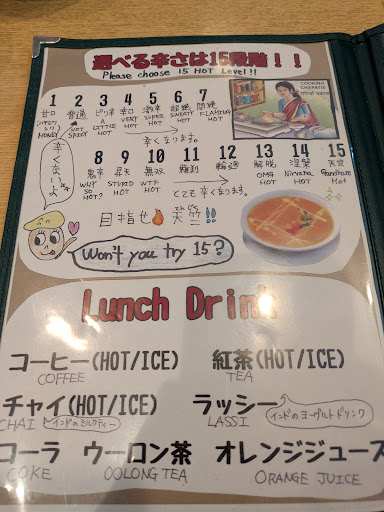 選べる辛さは15段階！！
Please choose 15 HOT Level!!
COOKING CHAPATIS
1 2 3 4 5 6 7
甘口 普通 ピリ辛 辛口 激辛 超辛 悶絶
HONEY NOT SPICY A LITTLE HOT VERY HOT SUPER HOT SWEATY HOT FLAMING HOT
辛くなります。
辛くないよ
8 9 10 11 12 13 14 15
鬼辛 昇天 無双 輪廻 解脱 涅槃 天竺
WHY SO HOT? STUPID HOT WTF HOT OMG HOT Nirvana HOT Gandhara Hot
とても辛くなります。
目指せ 天竺!!
Won't you try 15?
Lunch Drink
コーヒー(HOT/ICE) 紅茶(HOT/ICE)
COFFEE TEA
チャイ(HOT/ICE) ラッシー
CHAI インドのミルクティー LASSI インドのヨーグルトドリンク
コーラ ウーロン茶 オレンジジュース
COKE OOLONG TEA ORANGE JUICE